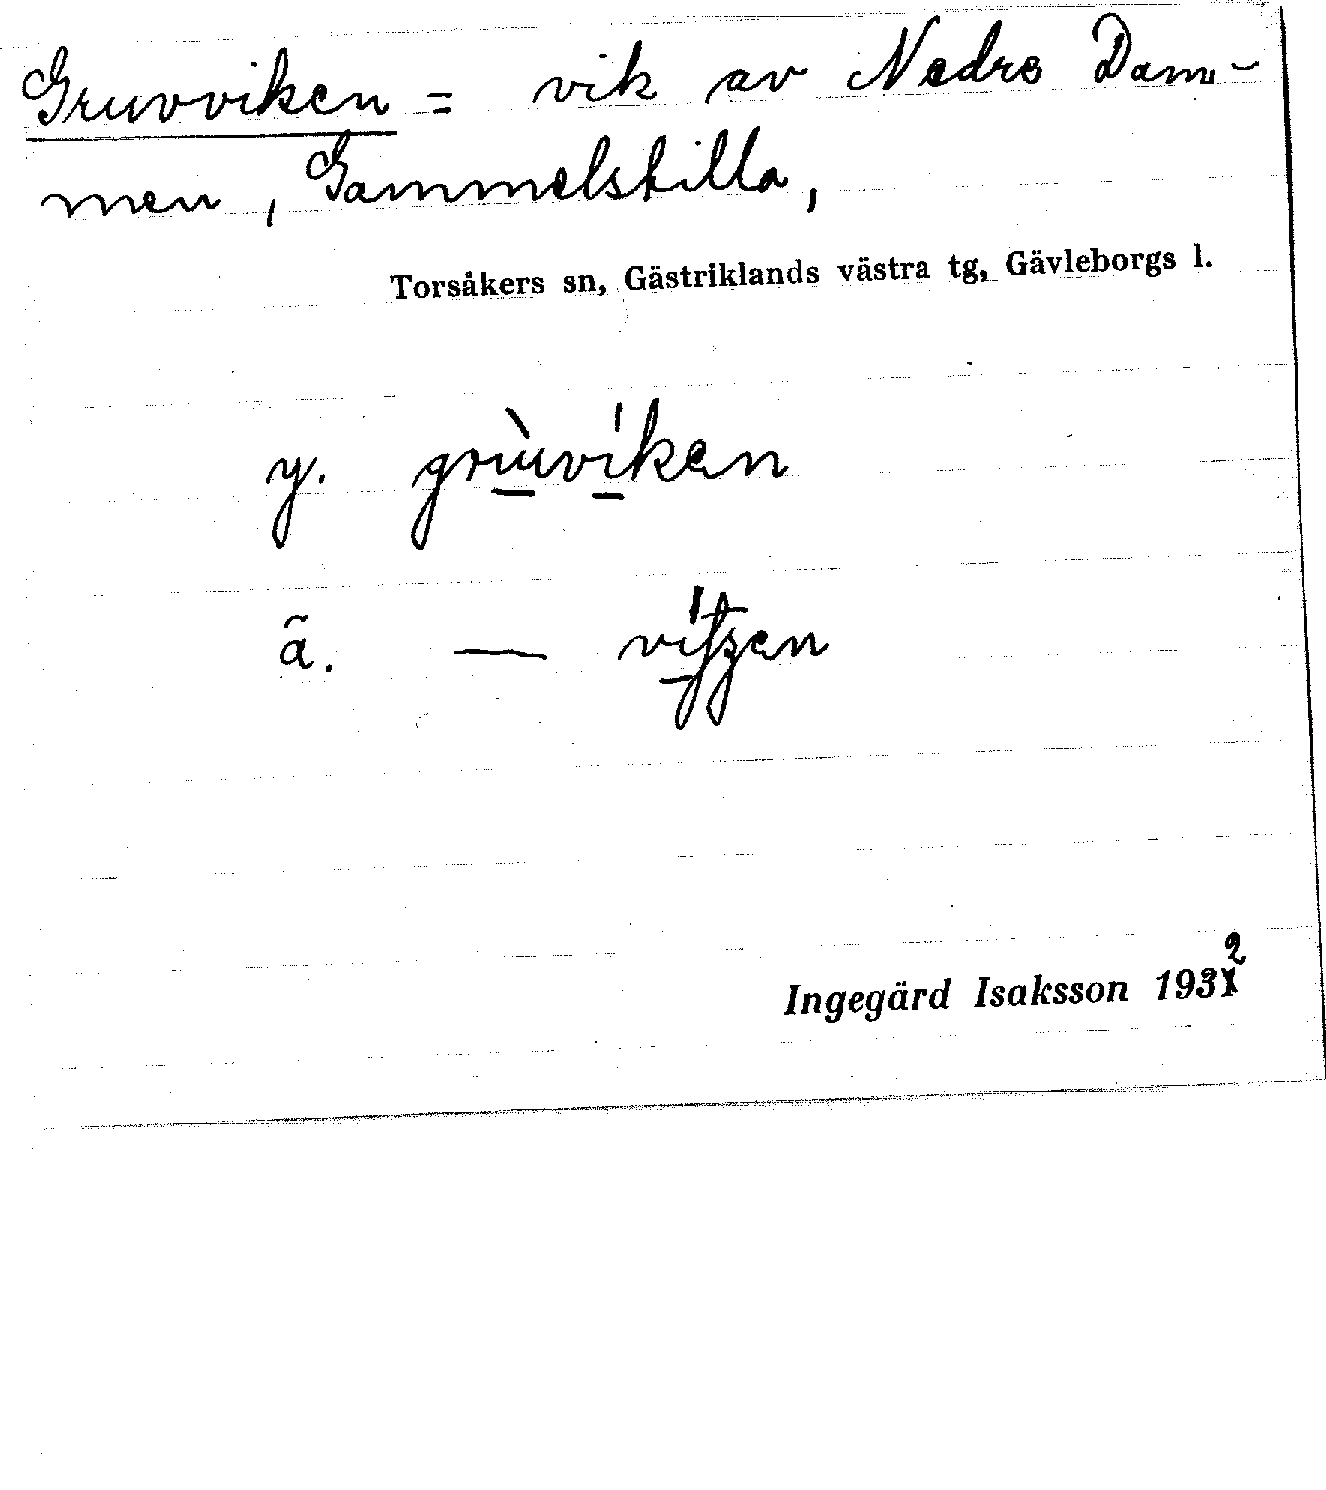 Gruvviken = vik av Nedre Dam-
men, Gammelstilla,
Torsåkers sn, Gästriklands västra tg, Gävleborgs l.
y. grùvíken
ã. —
Ingegärd Isaksson 1932